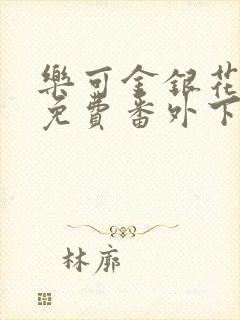 樂可金銀花
免費番外下
林廓